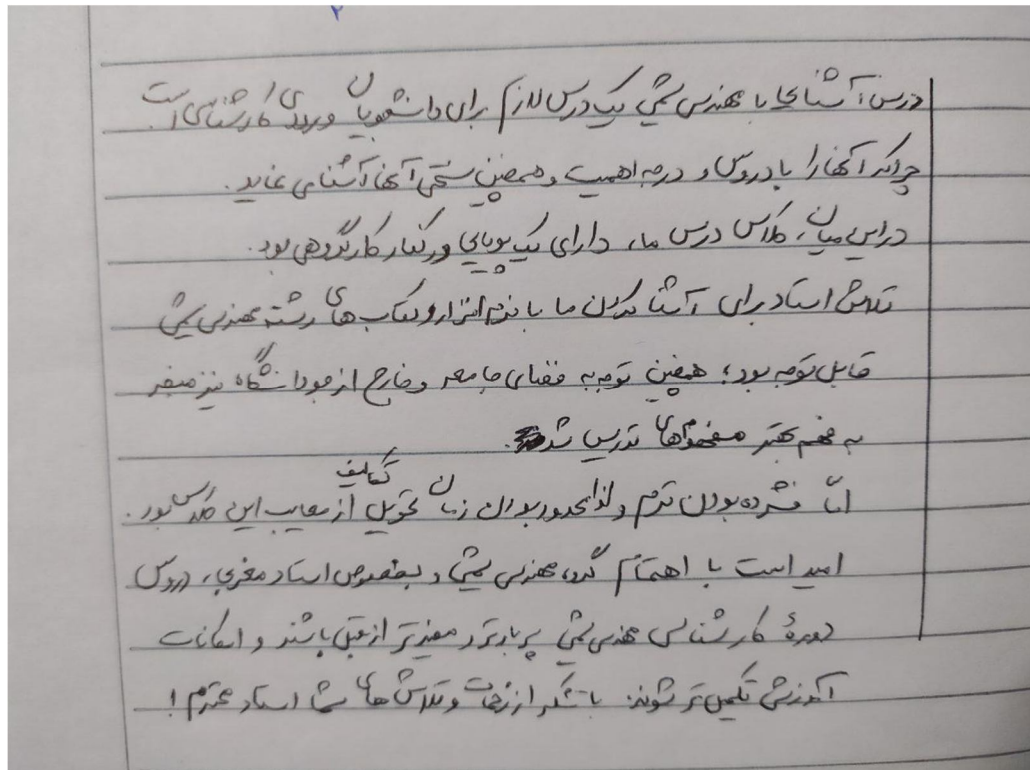 ۲
درس آشنایی با مهندسی شیمی یک درس لازم برای دانشجویان ورودی کارشناسی است
چراکه آنها را با دروس و درجه اهمیت و همچنین سختی آنها آشنا می نماید.
در این میان، کلاس درس ما، دارای یک پویایی در کنار کار گروهی بود.
تلاش استاد برای آشنا کردن ما با نرم افزار و کتاب های رشته مهندسی شیمی
قابل توجه بود؛ همچنین توجه به فضای جامعه و خارج از جو دانشگاه نیز منجر
به فهم بهتر مفهوم های تدریس شد.
امّا فشرده بودن ترم و لذا محدود بودن زمان تحویل تکالیف از معایب این کلاس بود.
امید است با اهتمام گروه مهندسی شیمی و بخصوص استاد مغربی، دروس
دورهٔ کارشناسی مهندسی شیمی پربارتر و مفیدتر از قبل باشند و امکانات
آموزشی تکمیل تر شوند. با تشکر از زحمات و تلاش های شما استاد محترم!